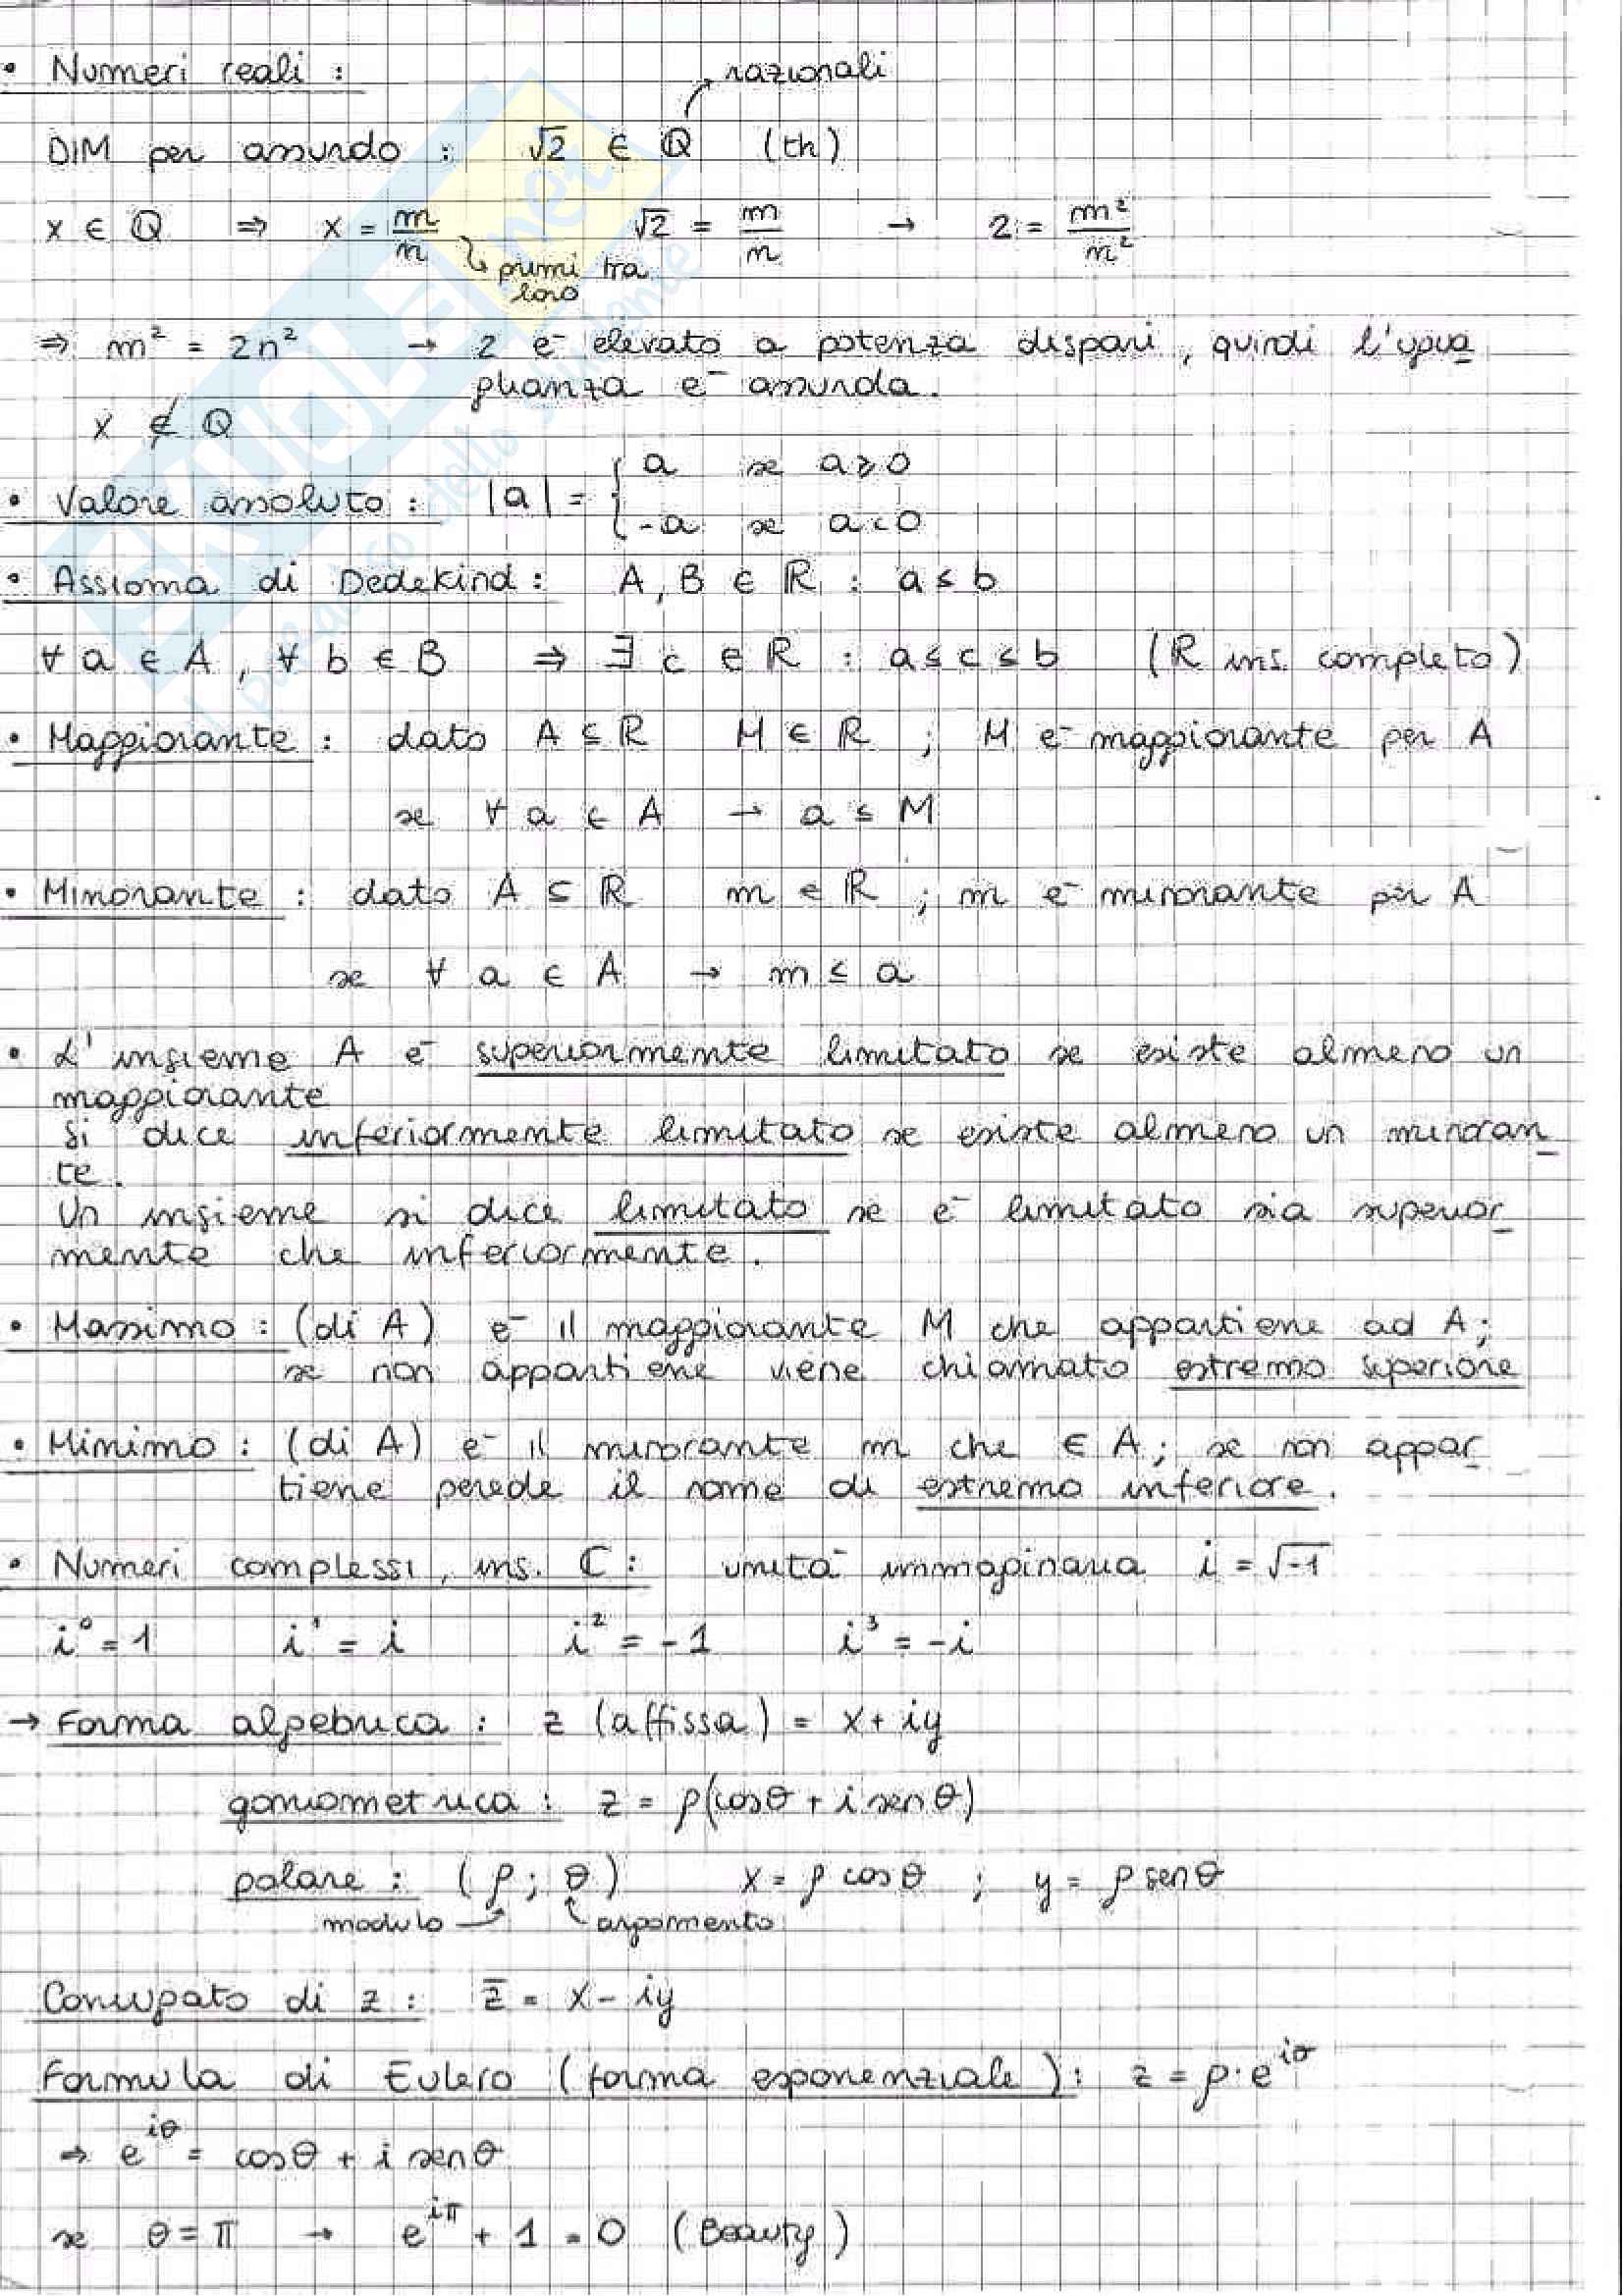 • Numeri reali :
razionali
DIM per assurdo : √2 ∈ ℚ (th)
x ∈ ℚ ⇒ x = m/n √2 = m/n → 2 = m²/n²
primi tra
loro
⇒ m² = 2n² → 2 è elevato a potenza dispari, quindi l'ugua
glianza è assurda.
x ∉ ℚ
• Valore assoluto : |a| = { a se a ≥ 0
-a se a < 0
• Assioma di Dedekind : A, B ∈ ℝ : a ≤ b
∀ a ∈ A, ∀ b ∈ B ⇒ ∃ c ∈ ℝ : a ≤ c ≤ b (ℝ ins. completo)
• Maggiorante : dato A ⊆ ℝ M ∈ ℝ ; M è maggiorante per A
se ∀ a ∈ A → a ≤ M
• Minorante : dato A ⊆ ℝ m ∈ ℝ ; m è minorante per A
se ∀ a ∈ A → m ≤ a
• L'insieme A è superiormente limitato se esiste almeno un
maggiorante
Si dice inferiormente limitato se esiste almeno un minoran
te.
Un insieme si dice limitato se è limitato sia superior
mente che inferiormente.
• Massimo : (di A) è il maggiorante M che appartiene ad A;
se non appartiene viene chiamato estremo superiore
• Minimo : (di A) è il minorante m che ∈ A; se non appar
tiene perede il nome di estremo inferiore.
• Numeri complessi, ins. ℂ : unità immaginaria i = √-1
i⁰ = 1 i¹ = i i² = -1 i³ = -i
→ Forma algebrica : z (affissa) = x + iy
goniometrica : z = ρ(cosθ + i senθ)
polare : (ρ; θ) x = ρ cosθ ; y = ρ senθ
modulo argomento
Coniugato di z : z̄ = x - iy
Formula di Eulero (forma esponenziale) : z = ρ·e^iθ
⇒ e^iθ = cosθ + i senθ
se θ = π → e^iπ + 1 = 0 (Beauty)
SKUOLA.net
il paradiso dello studente